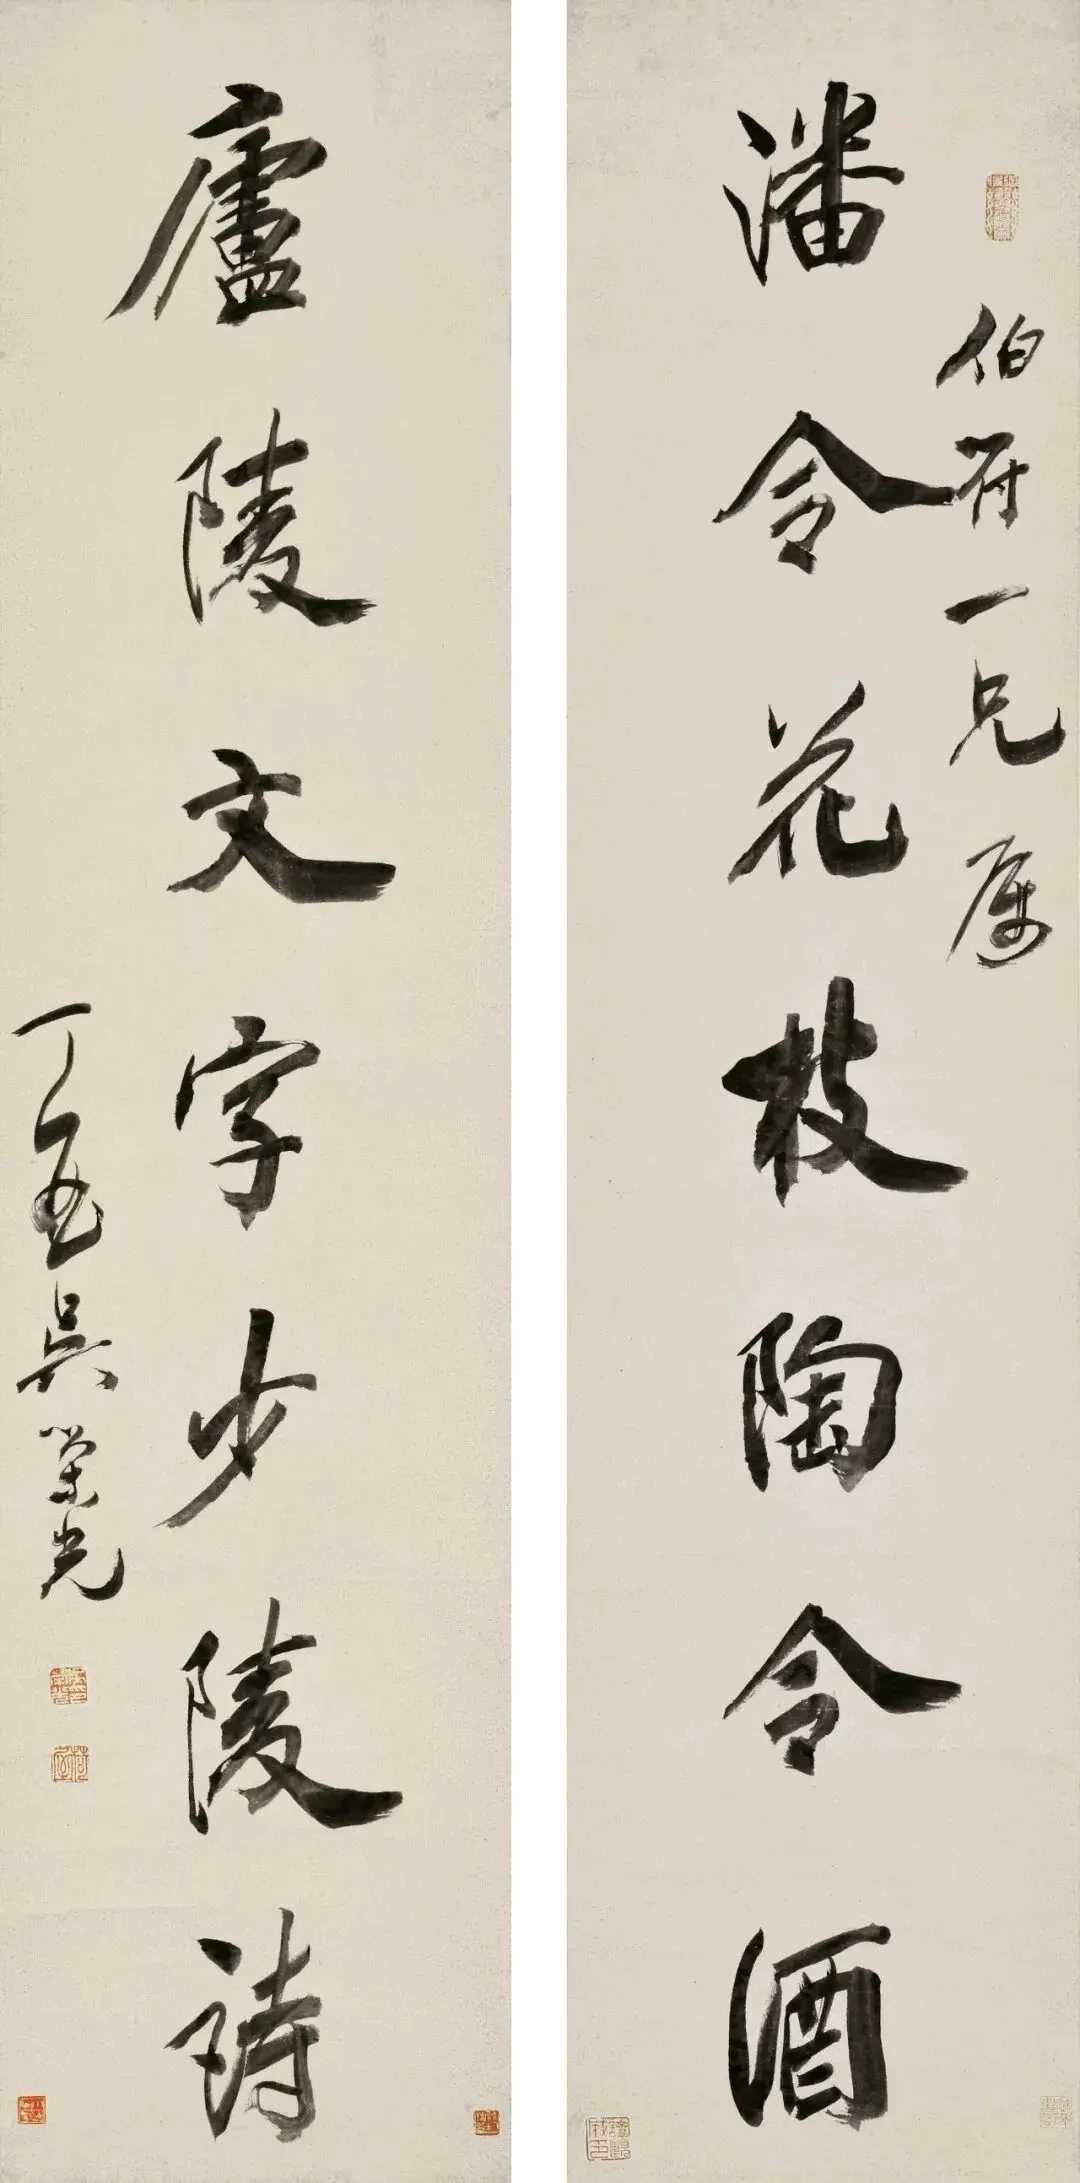 伯符一兄属
潘令花枝陶令酒
廬陵文字少陵詩
丁酉吳榮光
荷屋